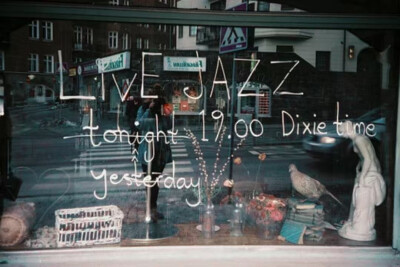 LIVE JAZZ
tonight 19.00 Dixie time
yesterday